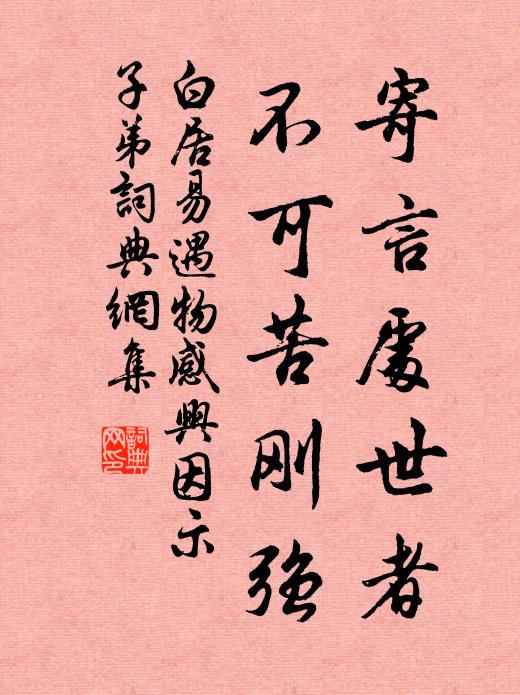 寄言處世者
不可苦刚强
白居易遇物感興因示
子弟詞典網集
詞典
网印